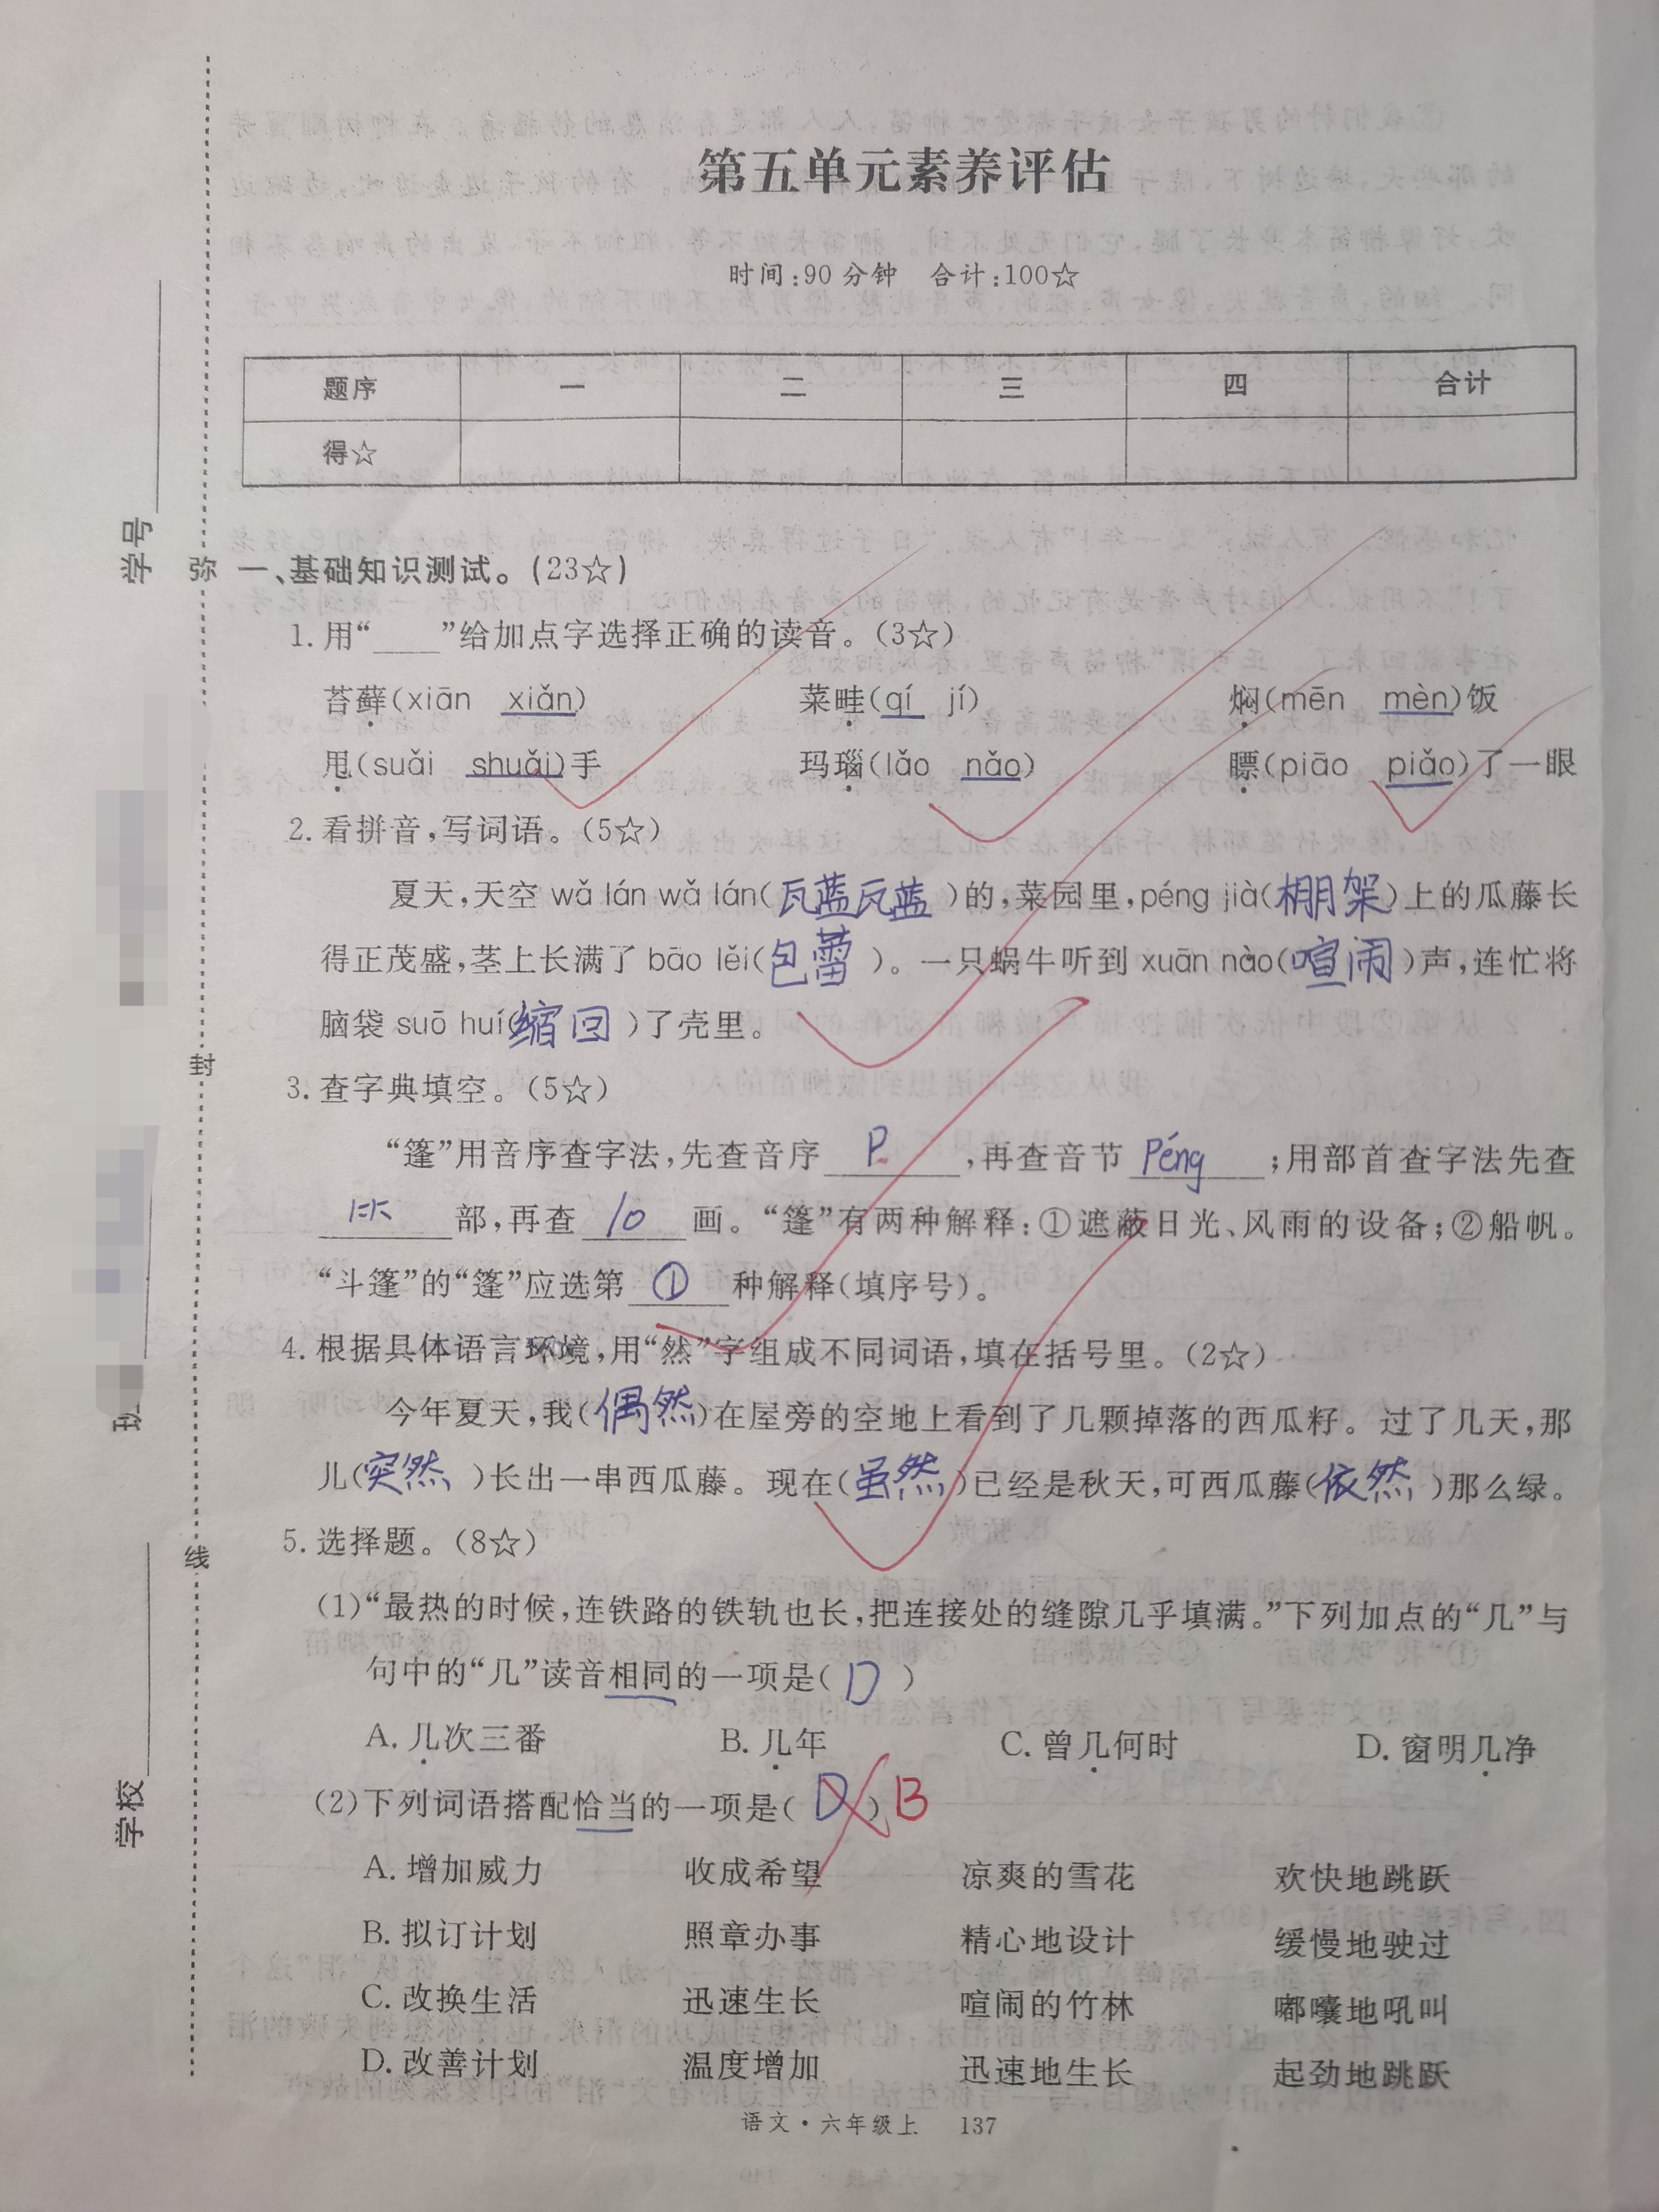 第五单元素养评估
时间:90分钟 合计:100☆
题序 一 二 三 四 合计
得☆
学号
弥
封
线
班
学校
一、基础知识测试。(23☆)
1. 用“____”给加点字选择正确的读音。(3☆)
苔藓(xiān xiǎn) 菜畦(qí jí) 焖(mēn mèn)饭
甩(suǎi shuǎi)手 玛瑙(lǎo nǎo) 瞟(piāo piǎo)了一眼
2. 看拼音,写词语。(5☆)
夏天,天空 wǎ lán wǎ lán(瓦蓝瓦蓝)的,菜园里,péng jià(棚架)上的瓜藤长
得正茂盛,茎上长满了 bāo lěi(包蕾)。一只蜗牛听到 xuān nào(喧闹)声,连忙将
脑袋 suō huí(缩回)了壳里。
3. 查字典填空。(5☆)
“篷”用音序查字法,先查音序 P ,再查音节 Péng ;用部首查字法先查
⺮ 部,再查 10 画。“篷”有两种解释:①遮蔽日光、风雨的设备;②船帆。
“斗篷”的“篷”应选第 ① 种解释(填序号)。
4. 根据具体语言环境,用“然”字组成不同词语,填在括号里。(2☆)
今年夏天,我(偶然)在屋旁的空地上看到了几颗掉落的西瓜籽。过了几天,那
儿(突然)长出一串西瓜藤。现在(虽然)已经是秋天,可西瓜藤(依然)那么绿。
5. 选择题。(8☆)
(1)“最热的时候,连铁路的铁轨也长,把连接处的缝隙几乎填满。”下列加点的“几”与
句中的“几”读音相同的一项是( D )
A. 几次三番 B. 几年 C. 曾几何时 D. 窗明几净
(2)下列词语搭配恰当的一项是( D ) B
A. 增加威力 收成希望 凉爽的雪花 欢快地跳跃
B. 拟订计划 照章办事 精心地设计 缓慢地驶过
C. 改换生活 迅速生长 喧闹的竹林 嘟囔地吼叫
D. 改善计划 温度增加 迅速地生长 起劲地跳跃
语文·六年级上 137